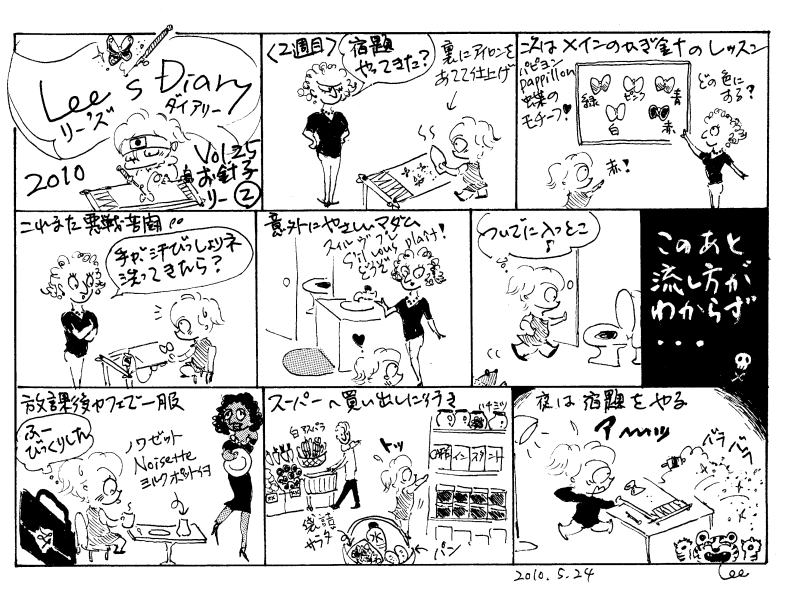 Lee's Diary
リーズ ダイアリー
2010
Vol.25
お針子
リー②
〈2週目〉
宿題
やってきた?
裏にアイロンを
あてて仕上げ
次はメインのかぎ針のレッスン
パピヨン
pappillon
蝶の
モチーフ♥
緑
ピンク
青
白
赤
どの色に
する?
赤!
これまた悪戦苦闘
手が汗びっしょりネ
洗ってきたら?
意外にやさしいマダム
スィルヴプレ
S'il vous plait!
どうぞ
ついでに入っとこ
♪
このあと
流し方が
わからず
・・・
放課後カフェで一服
ふー
びっくりしたん
ノワゼット
Noisette
ミルクポットつき
スーパーへ買い出しに行き
白アスパラ
ハチミツ
CAFE
インスタント
トッ
袋詰
サラダ
水
パン
夜は宿題をやる
バラバラ
2010.5.24
Lee